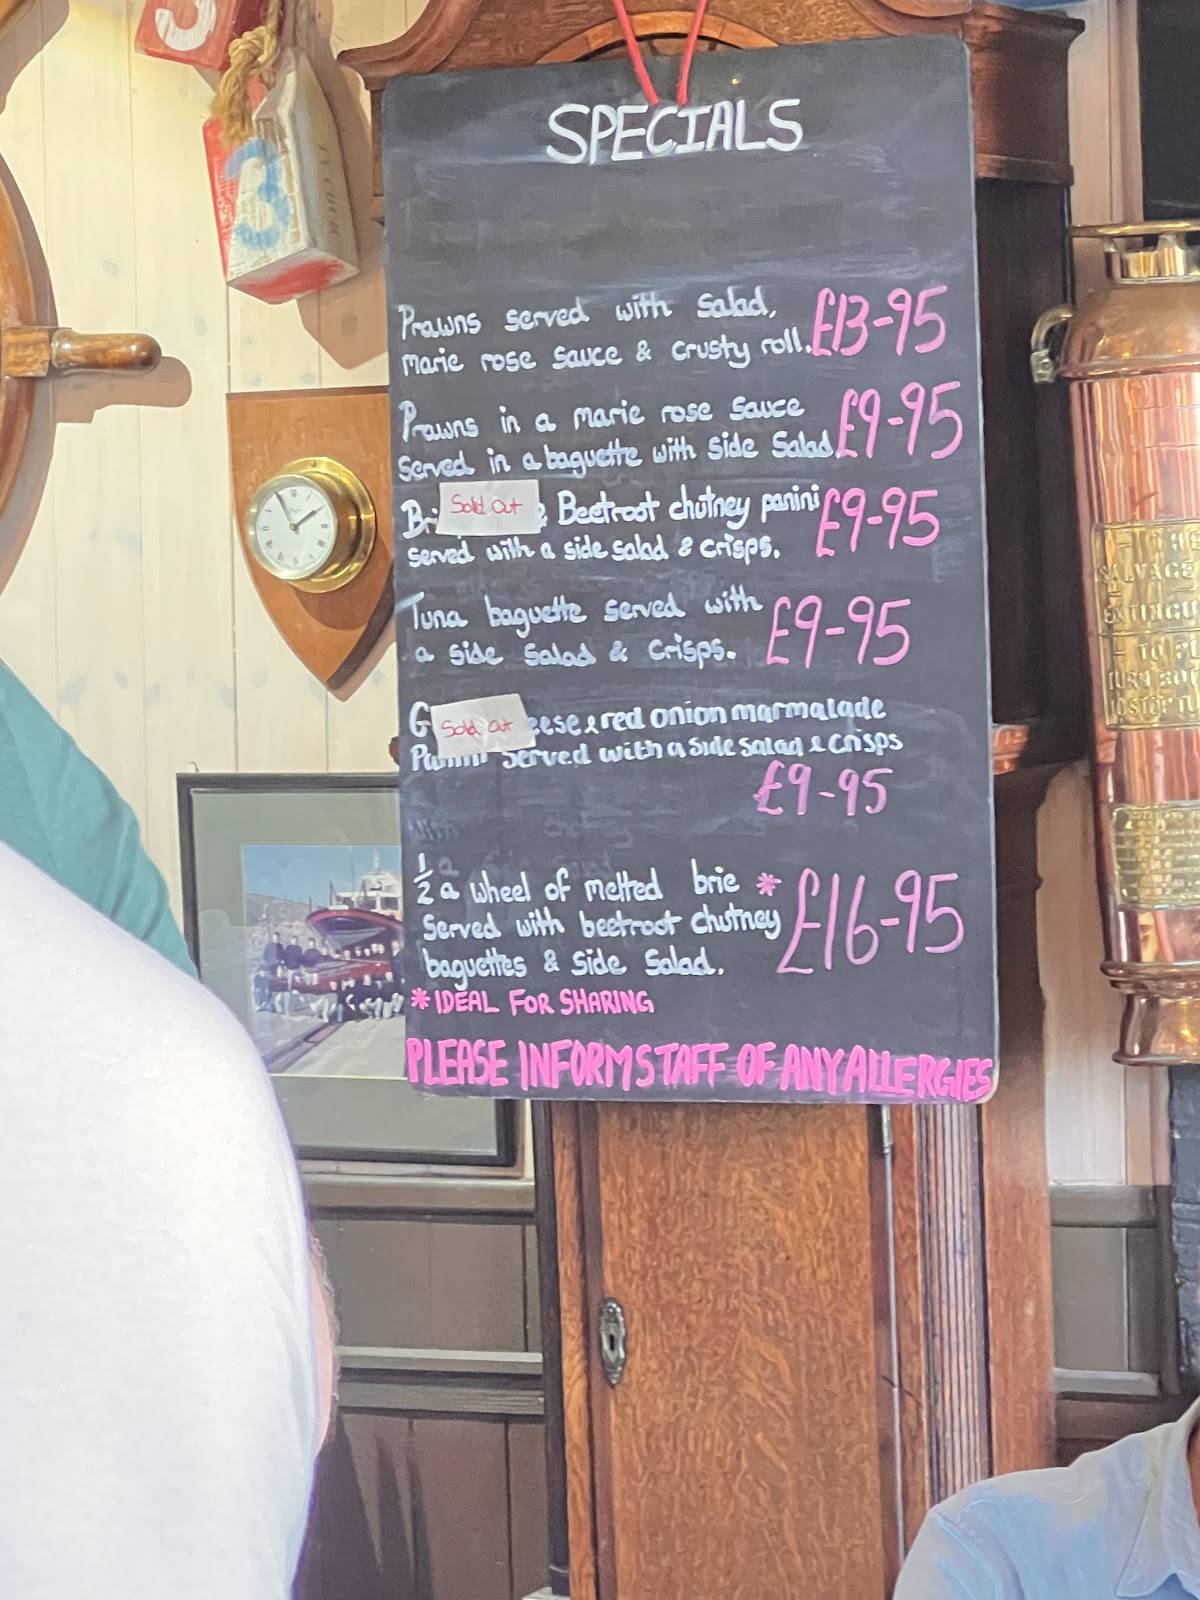 3
3
SPECIALS
Prawns served with salad,
marie rose sauce & crusty roll. £13-95
Prawns in a marie rose sauce
served in a baguette with side salad £9-95
Sold Out & Beetroot chutney panini
served with a side salad & crisps. £9-95
Tuna baguette served with
a side salad & crisps. £9-95
Sold Out & red onion marmalade
Panini served with a side salad & crisps
£9-95
1/2 a wheel of melted brie *
served with beetroot chutney
baguettes & side salad. £16-95
* IDEAL FOR SHARING
PLEASE INFORM STAFF OF ANY ALLERGIES